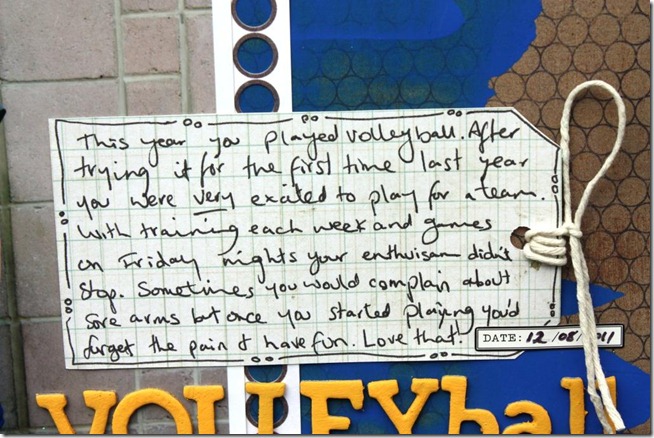 This year you played volleyball. After
trying it for the first time last year
you were very excited to play for a team.
With training each week and games
on Friday nights your enthuisam didn't
stop. Sometimes you would complain about
sore arms but once you started playing you'd
forget the pain & have fun. Love that.
DATE: 12/08/2011
VOLLEYball